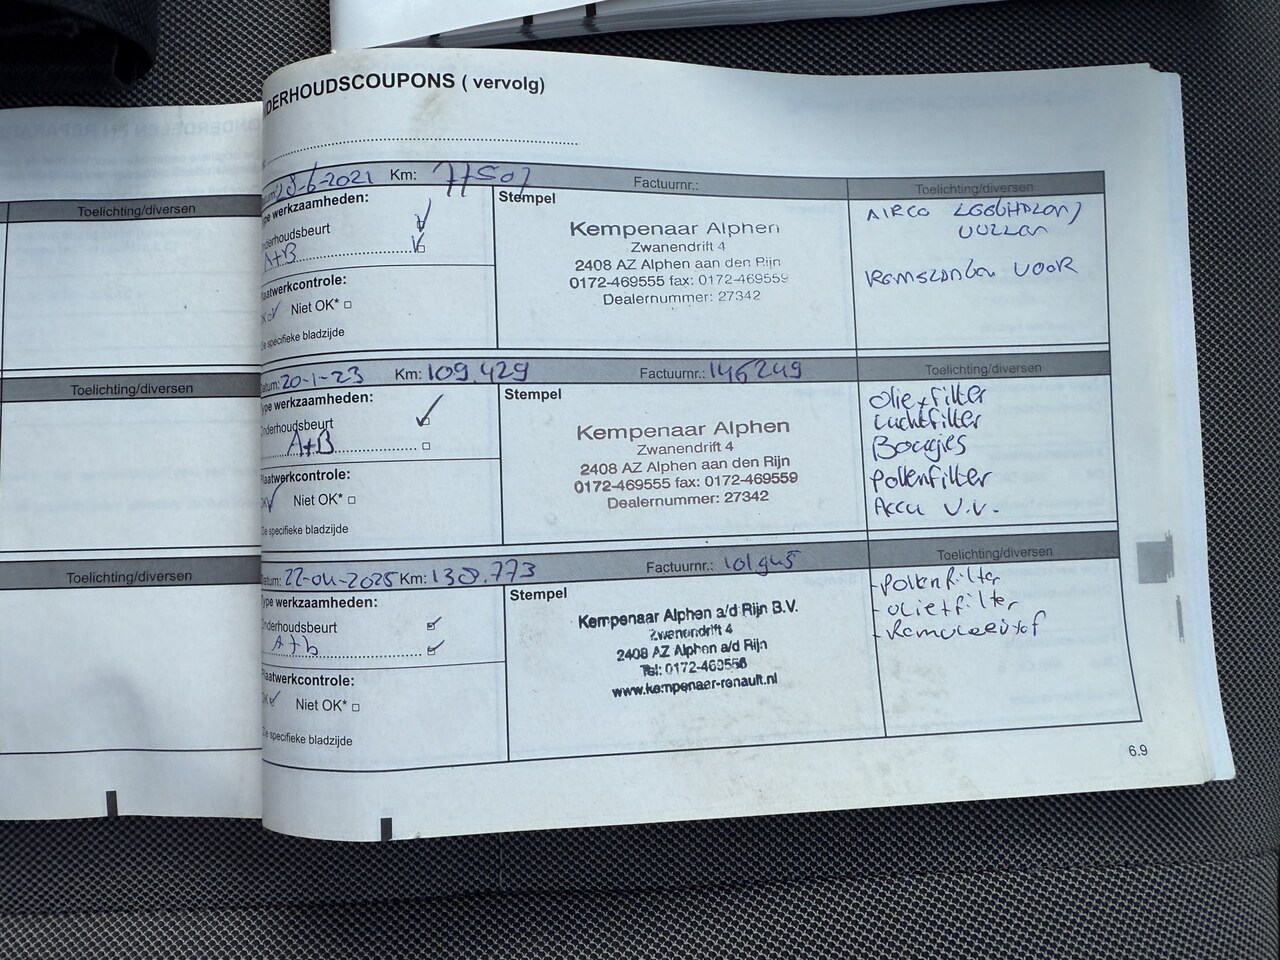 DERHOUDSCOUPONS ( vervolg)
Toelichting/diversen
Toelichting/diversen
Toelichting/diversen
28-6-2021 Km: 77507 Factuurnr.: Toelichting/diversen
pe werkzaamheden:
nderhoudsbeurt
A+B
laatwerkcontrole:
Niet OK*
Zie specifieke bladzijde
Stempel
Kempenaar Alphen
Zwanendrift 4
2408 AZ Alphen aan den Rijn
0172-469555 fax: 0172-469559
Dealernummer: 27342
AIRCO
VULLEN
VOOR
Datum: 20-1-23 Km: 109.429 Factuurnr.: 146249 Toelichting/diversen
Type werkzaamheden:
Onderhoudsbeurt
A+B
Plaatwerkcontrole:
OK Niet OK*
Zie specifieke bladzijde
Stempel
Kempenaar Alphen
Zwanendrift 4
2408 AZ Alphen aan den Rijn
0172-469555 fax: 0172-469559
Dealernummer: 27342
Olie+filter
Luchtfilter
Bougies
Pollenfilter
Accu V.V.
Datum: 22-04-2025 Km: 138.773 Factuurnr.: 101945 Toelichting/diversen
Type werkzaamheden:
Onderhoudsbeurt
A+b
Plaatwerkcontrole:
OK Niet OK*
Zie specifieke bladzijde
Stempel
Kempenaar Alphen a/d Rijn B.V.
Zwanendrift 4
2408 AZ Alphen a/d Rijn
Tel: 0172-469555
www.kempenaar-renault.nl
- Pollenfilter
- olie+filter
- Remvloeistof
6.9